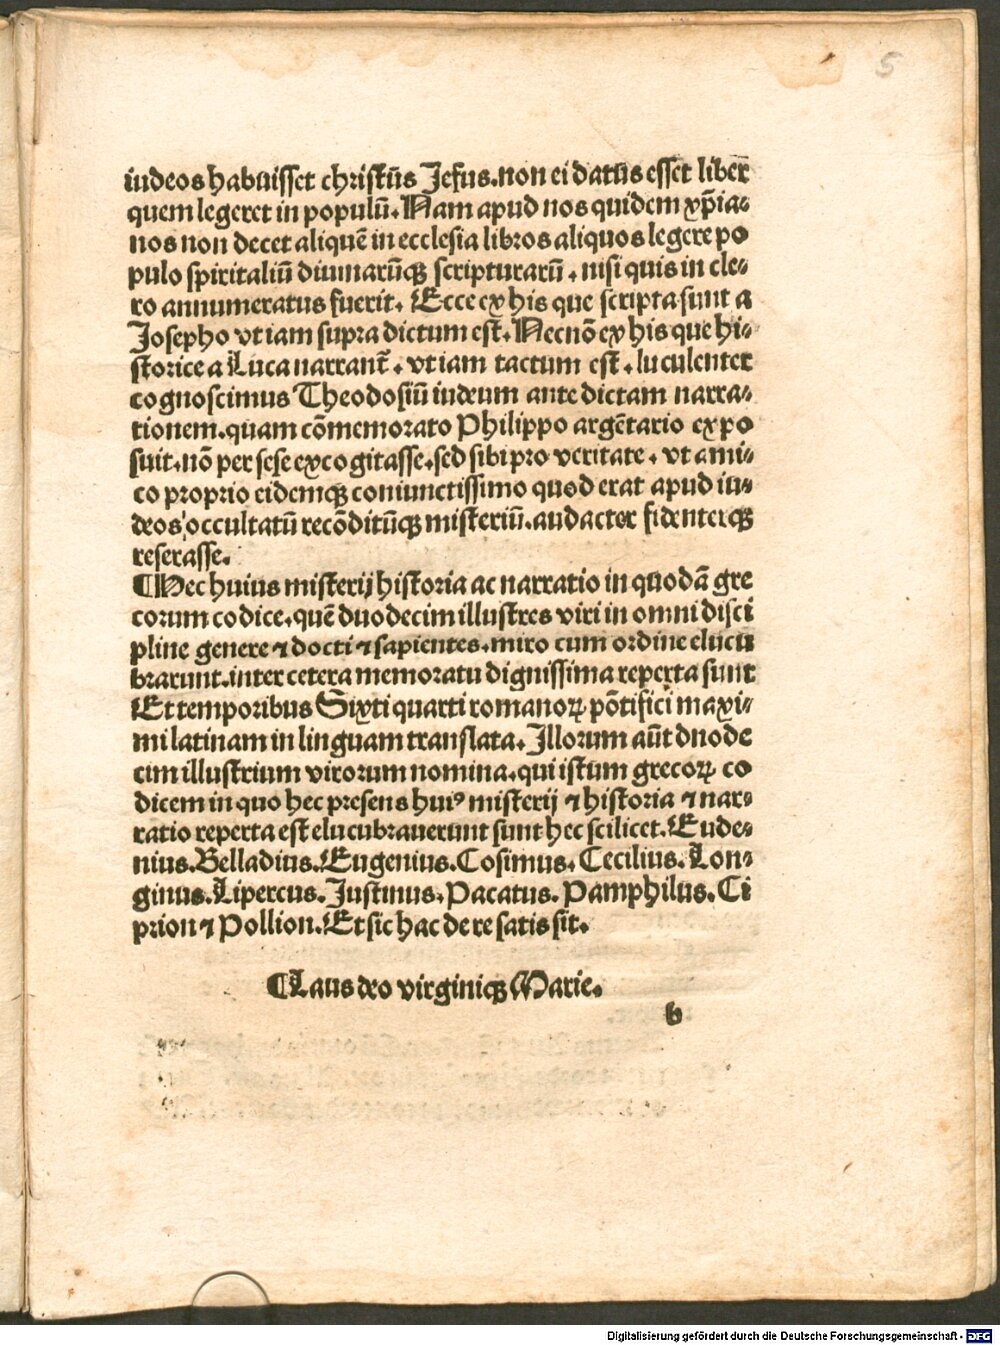 5
iudeos habuisset christūs Jesus.non ei datus esset liber
quem legeret in populū. Nam apud nos quidem xp̄ia⸗
nos non decet aliquē in ecclesia libros aliquos legere po
pulo spiritaliū diuinarūqꝫ scripturarū. nisi quis in cle⸗
ro annumeratus fuerit. Ecce ex his que scripta sunt a
Josepho vt iam supra dictum est. Necnō ex his que hi⸗
storice a Luca narrant̄. vt iam tactum est. luculenter
cognoscimus Theodosiū iudeum ante dictam narra⸗
tionem.quam cōmemorato Philippo argētario expo
suit.nō per sese excogitasse.sed sibi pro veritate. vt ami⸗
co proprio eidemqꝫ coniunctissimo quod erat apud iu⸗
deos occultatū recōditūqꝫ misteriū.audacter fidenterqꝫ
reserasse.
¶Hec huius misterij historia ac narratio in quodā gre
corum codice.quē duodecim illustres viri in omni disci
pline genere ⁊ docti ⁊ sapientes.miro cum ordine elucu
brarunt.inter cetera memoratu dignissima reperta sunt
Et temporibus Sixti quarti romanoꝝ pōtifici maxi⸗
mi latinam in linguam translata. Illorum aūt dnode
cim illustrium virorum nomina.qui istum grecoꝝ co
dicem in quo hec presens huiꝰ misterij ⁊ historia ⁊ nar⸗
ratio reperta est elucubrauerunt sunt hec scilicet. Eude⸗
nius.Belladius.Eugenius.Cosimus.Cecilius.Lon⸗
ginus.Lipercus.Justinus.Pacatus.Pamphilus.Ci
prion ⁊ Pollion.Et sic hac de re satis sit.
¶Laus deo virginiqꝫ Marie.
b
Digitalisierung gefördert durch die Deutsche Forschungsgemeinschaft - DFG